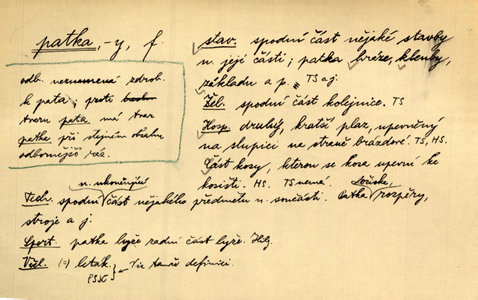 patka, -y, f.
odb. neznamená zdrob.
k pata; proti
tvaru pata má tvar
patka při stejném obsahu
odbornější ráz.
stav. spodní část nějaké stavby
n. její části; patka hráze, klenby,
základu a p. TS aj.
Žel. spodní část kolejnice. TS
Hosp. druhý, kratší plaz, upevněný
na slupici na straně brázdové. TS, HS.
Část kosy, kterou se kosa upevní ke
kosišti. HS. TS nemá.
n. ukončující
Tech. spodní část nějakého předmětu n. součásti. Patka rozpěry,
stroje a j.
Sport. patka lyže zadní část lyže.
Včel. (=) leták.
PSJČ